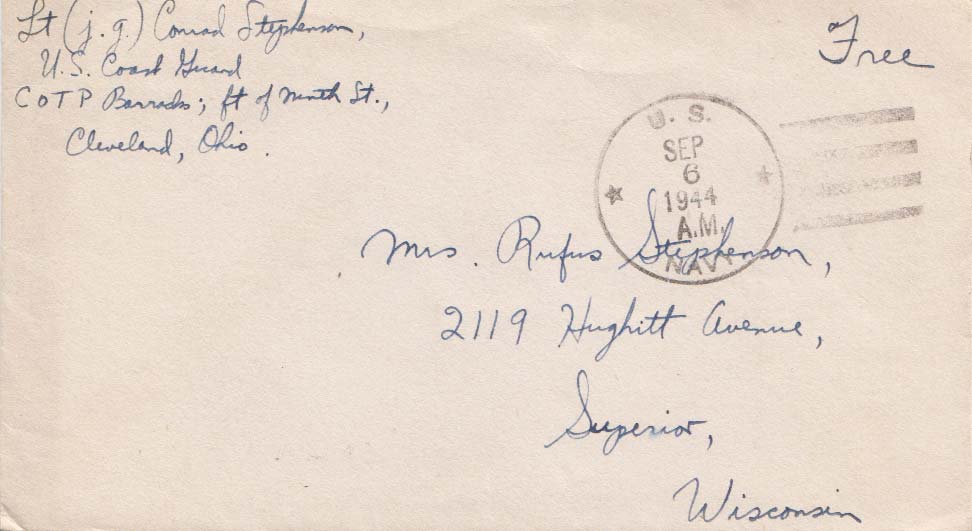 Lt (j.g.) Conrad Stephenson,
U.S. Coast Guard
COTP Barracks; ft of Ninth St.,
Cleveland, Ohio.
Free
U. S.
SEP
6
1944
A.M.
NAVY
Mrs. Rufus Stephenson,
2119 Hughitt Avenue,
Superior,
Wisconsin